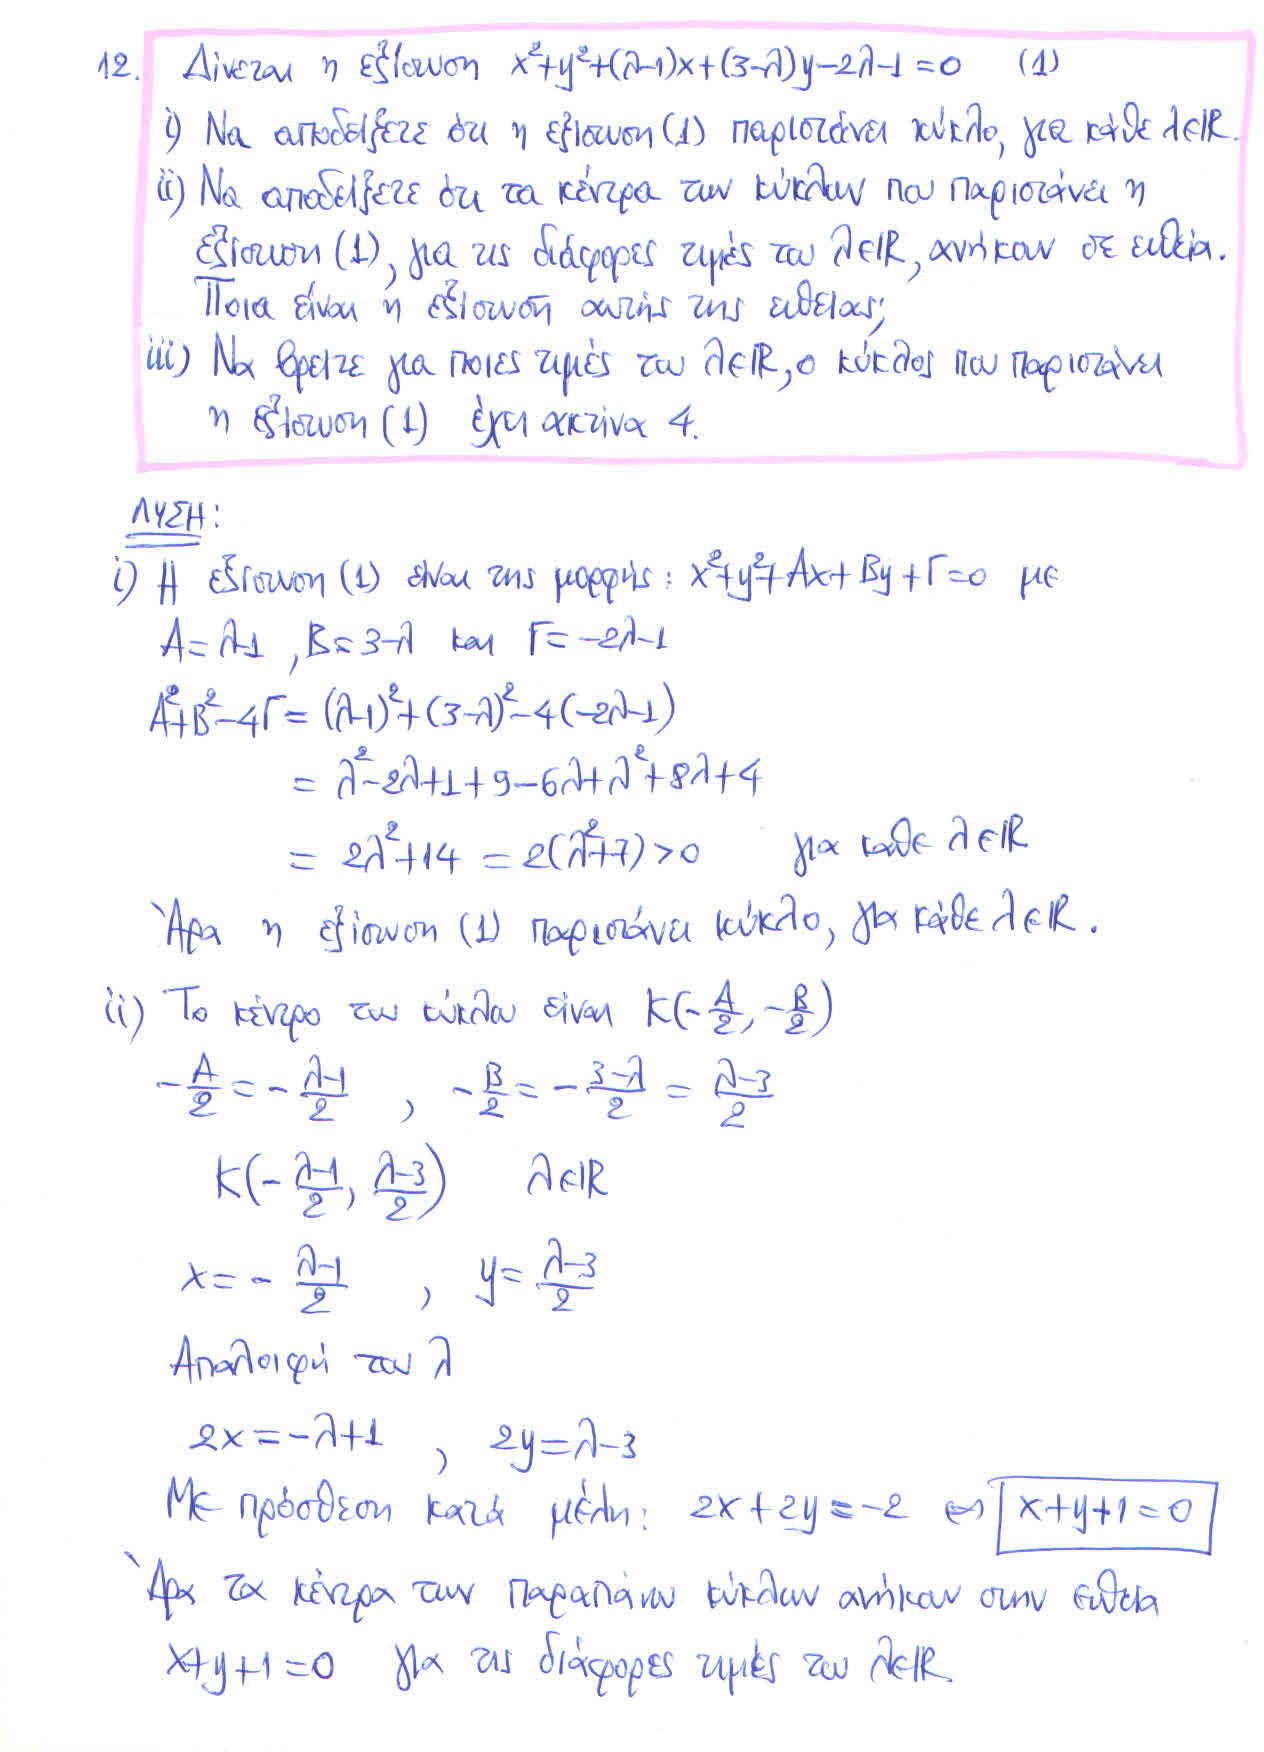 12. Δίνεται η εξίσωση x²+y²+(λ-1)x+(3-λ)y-2λ-1=0 (1)
i) Να αποδείξετε ότι η εξίσωση (1) παριστάνει κύκλο, για κάθε λ∈ℝ.
ii) Να αποδείξετε ότι τα κέντρα των κύκλων που παριστάνει η
εξίσωση (1), για τις διάφορες τιμές του λ∈ℝ, ανήκουν σε ευθεία.
Ποια είναι η εξίσωση αυτής της ευθείας;
iii) Να βρείτε για ποιες τιμές του λ∈ℝ, ο κύκλος που παριστάνει
η εξίσωση (1) έχει ακτίνα 4.
ΛΥΣΗ:
i) Η εξίσωση (1) είναι της μορφής: x²+y²+Αx+Βy+Γ=0 με
Α=λ-1, Β=3-λ και Γ=-2λ-1
Α²+Β²-4Γ=(λ-1)²+(3-λ)²-4(-2λ-1)
=λ²-2λ+1+9-6λ+λ²+8λ+4
=2λ²+14=2(λ²+7)>0 για κάθε λ∈ℝ
Άρα η εξίσωση (1) παριστάνει κύκλο, για κάθε λ∈ℝ.
ii) Το κέντρο του κύκλου είναι Κ(-Α/2, -Β/2)
-Α/2=-(λ-1)/2 , -Β/2=-(3-λ)/2=(λ-3)/2
Κ(-(λ-1)/2, (λ-3)/2) λ∈ℝ
x=-(λ-1)/2 , y=(λ-3)/2
Απαλοιφή του λ
2x=-λ+1 , 2y=λ-3
Με πρόσθεση κατά μέλη: 2x+2y=-2 ⇔ x+y+1=0
Άρα τα κέντρα των παραπάνω κύκλων ανήκουν στην ευθεία
x+y+1=0 για τις διάφορες τιμές του λ∈ℝ